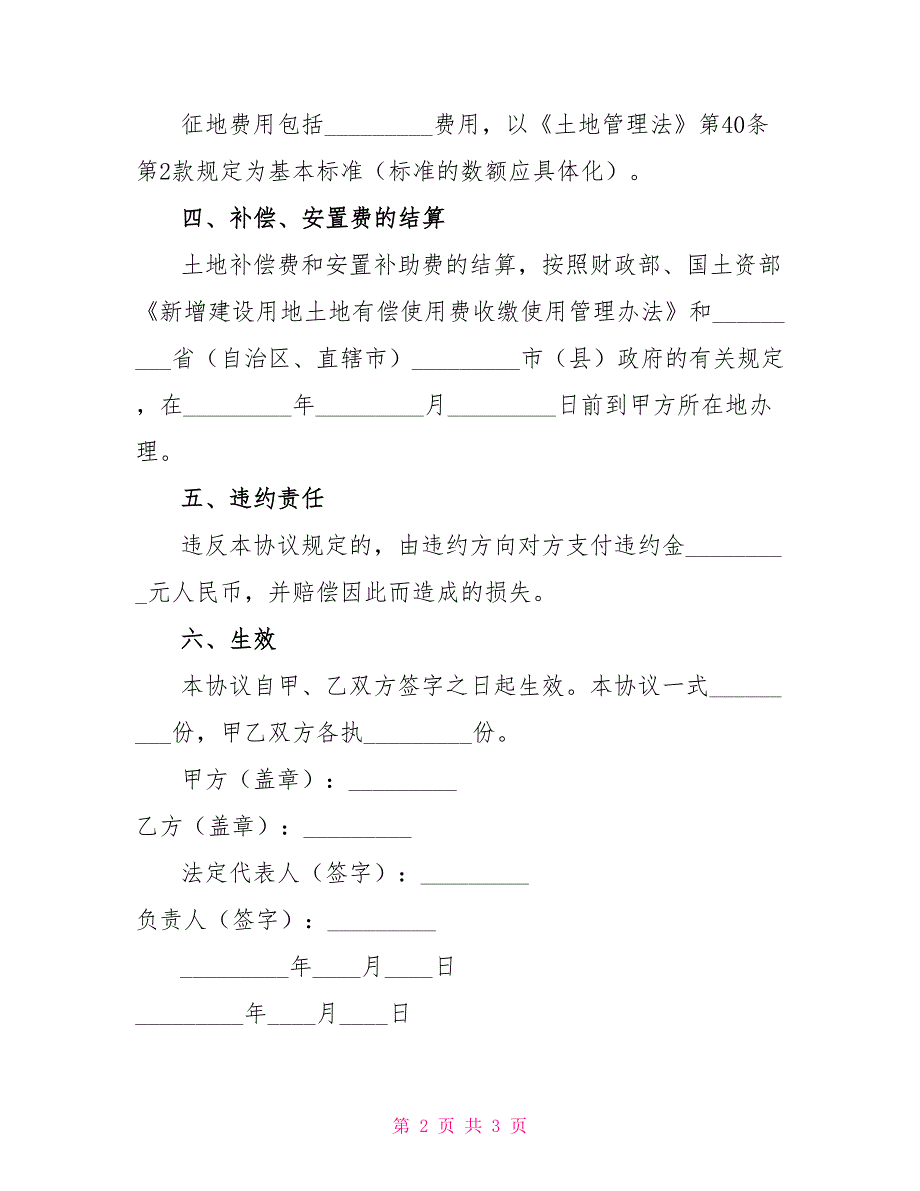 征地费用包括_________费用，以《土地管理法》第40条
第2款规定为基本标准（标准的数额应具体化）。
四、补偿、安置费的结算
土地补偿费和安置补助费的结算，按照财政部、国土资部
《新增建设用地土地有偿使用费收缴使用管理办法》和______
___省（自治区、直辖市）_________市（县）政府的有关规定
，在_________年_________月_________日前到甲方所在地办
理。
五、违约责任
违反本协议规定的，由违约方向对方支付违约金________
_元人民币，并赔偿因此而造成的损失。
六、生效
本协议自甲、乙双方签字之日起生效。本协议一式______
___份，甲乙双方各执_________份。
甲方（盖章）：_________
乙方（盖章）：_________
法定代表人（签字）：_________
负责人（签字）：_________
_________年____月____日
_________年____月____日
第 2 页 共 3 页